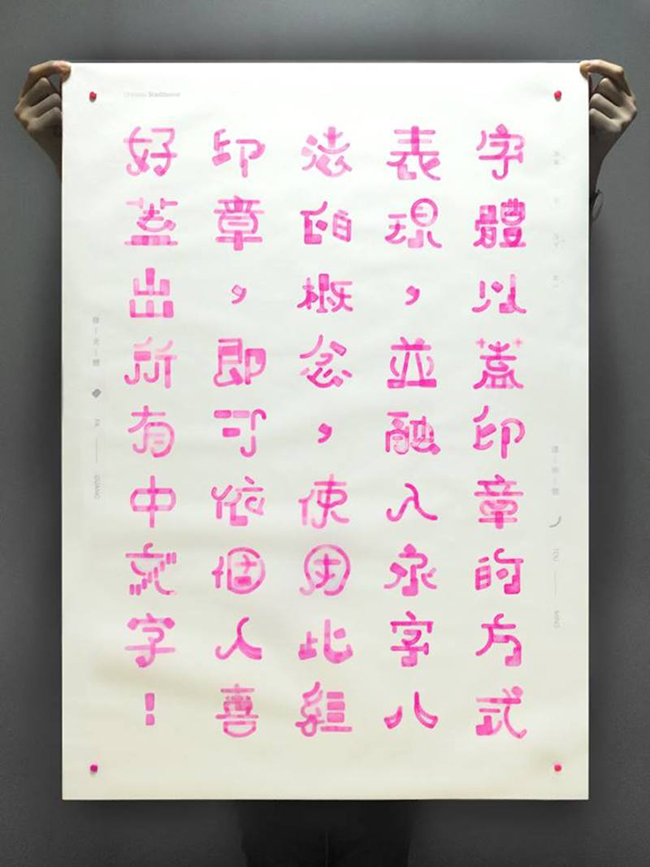 字體以蓋印章的方式
表現，並融入永字八
法的概念，使用此組
印章，即可依個人喜
好蓋出所有中文字！
TOU
MING
GUANG